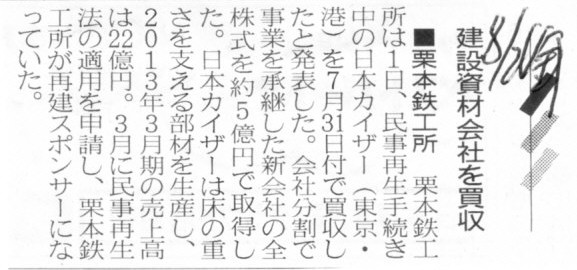 8/2 金
建設資材会社を買収
■栗本鉄工所　栗本鉄工
所は１日、民事再生手続き
中の日本カイザー（東京・
港）を７月31日付で買収し
たと発表した。会社分割で
事業を承継した新会社の全
株式を約５億円で取得し
た。日本カイザーは床の重
さを支える部材を生産し、
２０１３年３月期の売上高
は22億円。３月に民事再生
法の適用を申請し、栗本鉄
工所が再建スポンサーにな
っていた。